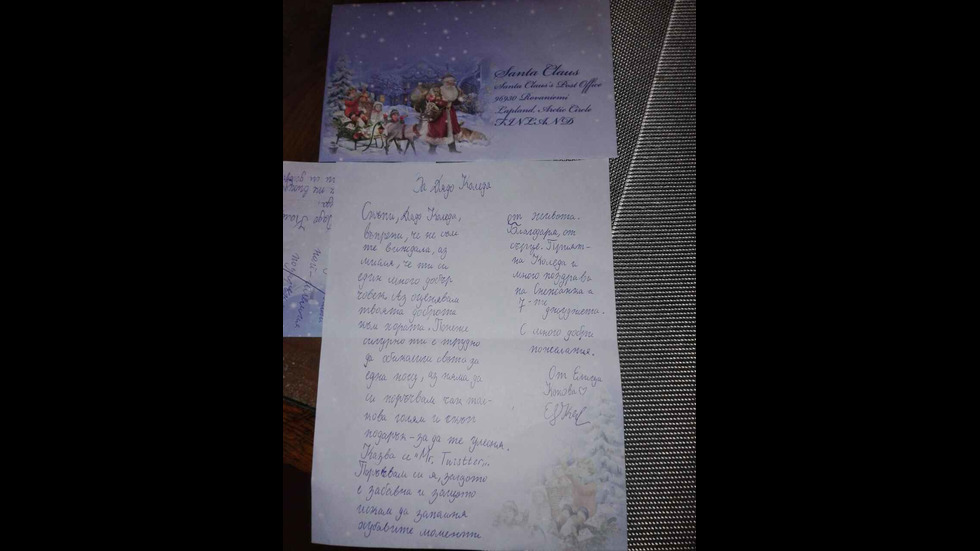 Santa Claus
Santa Claus's Post Office
96930 Rovaniemi
Lapland, Arctic Circle
FINLAND
За Дядо Коледа
Скъпи, Дядо Коледа,
въпреки, че не съм
те виждала, аз
мисля, че ти си
един много добър
човек. Аз оценявам
твоята доброта
към хората. Понеже
сигурно ти е трудно
да обиколиш света за
една нощ, аз няма да
си поръчвам чак тол-
кова голям и скъп
подарък - за да те улесня.
Казва се "Mr. Twistter".
Поръчвам си я, защото
е забавна и защото
искам да запомня
хубавите моменти
от живота.
Благодаря, от
сърце. Прият-
на Коледа и
много поздрави
на Снежанка и
7-те джуджета.
С много добри
пожелания.
От Елица